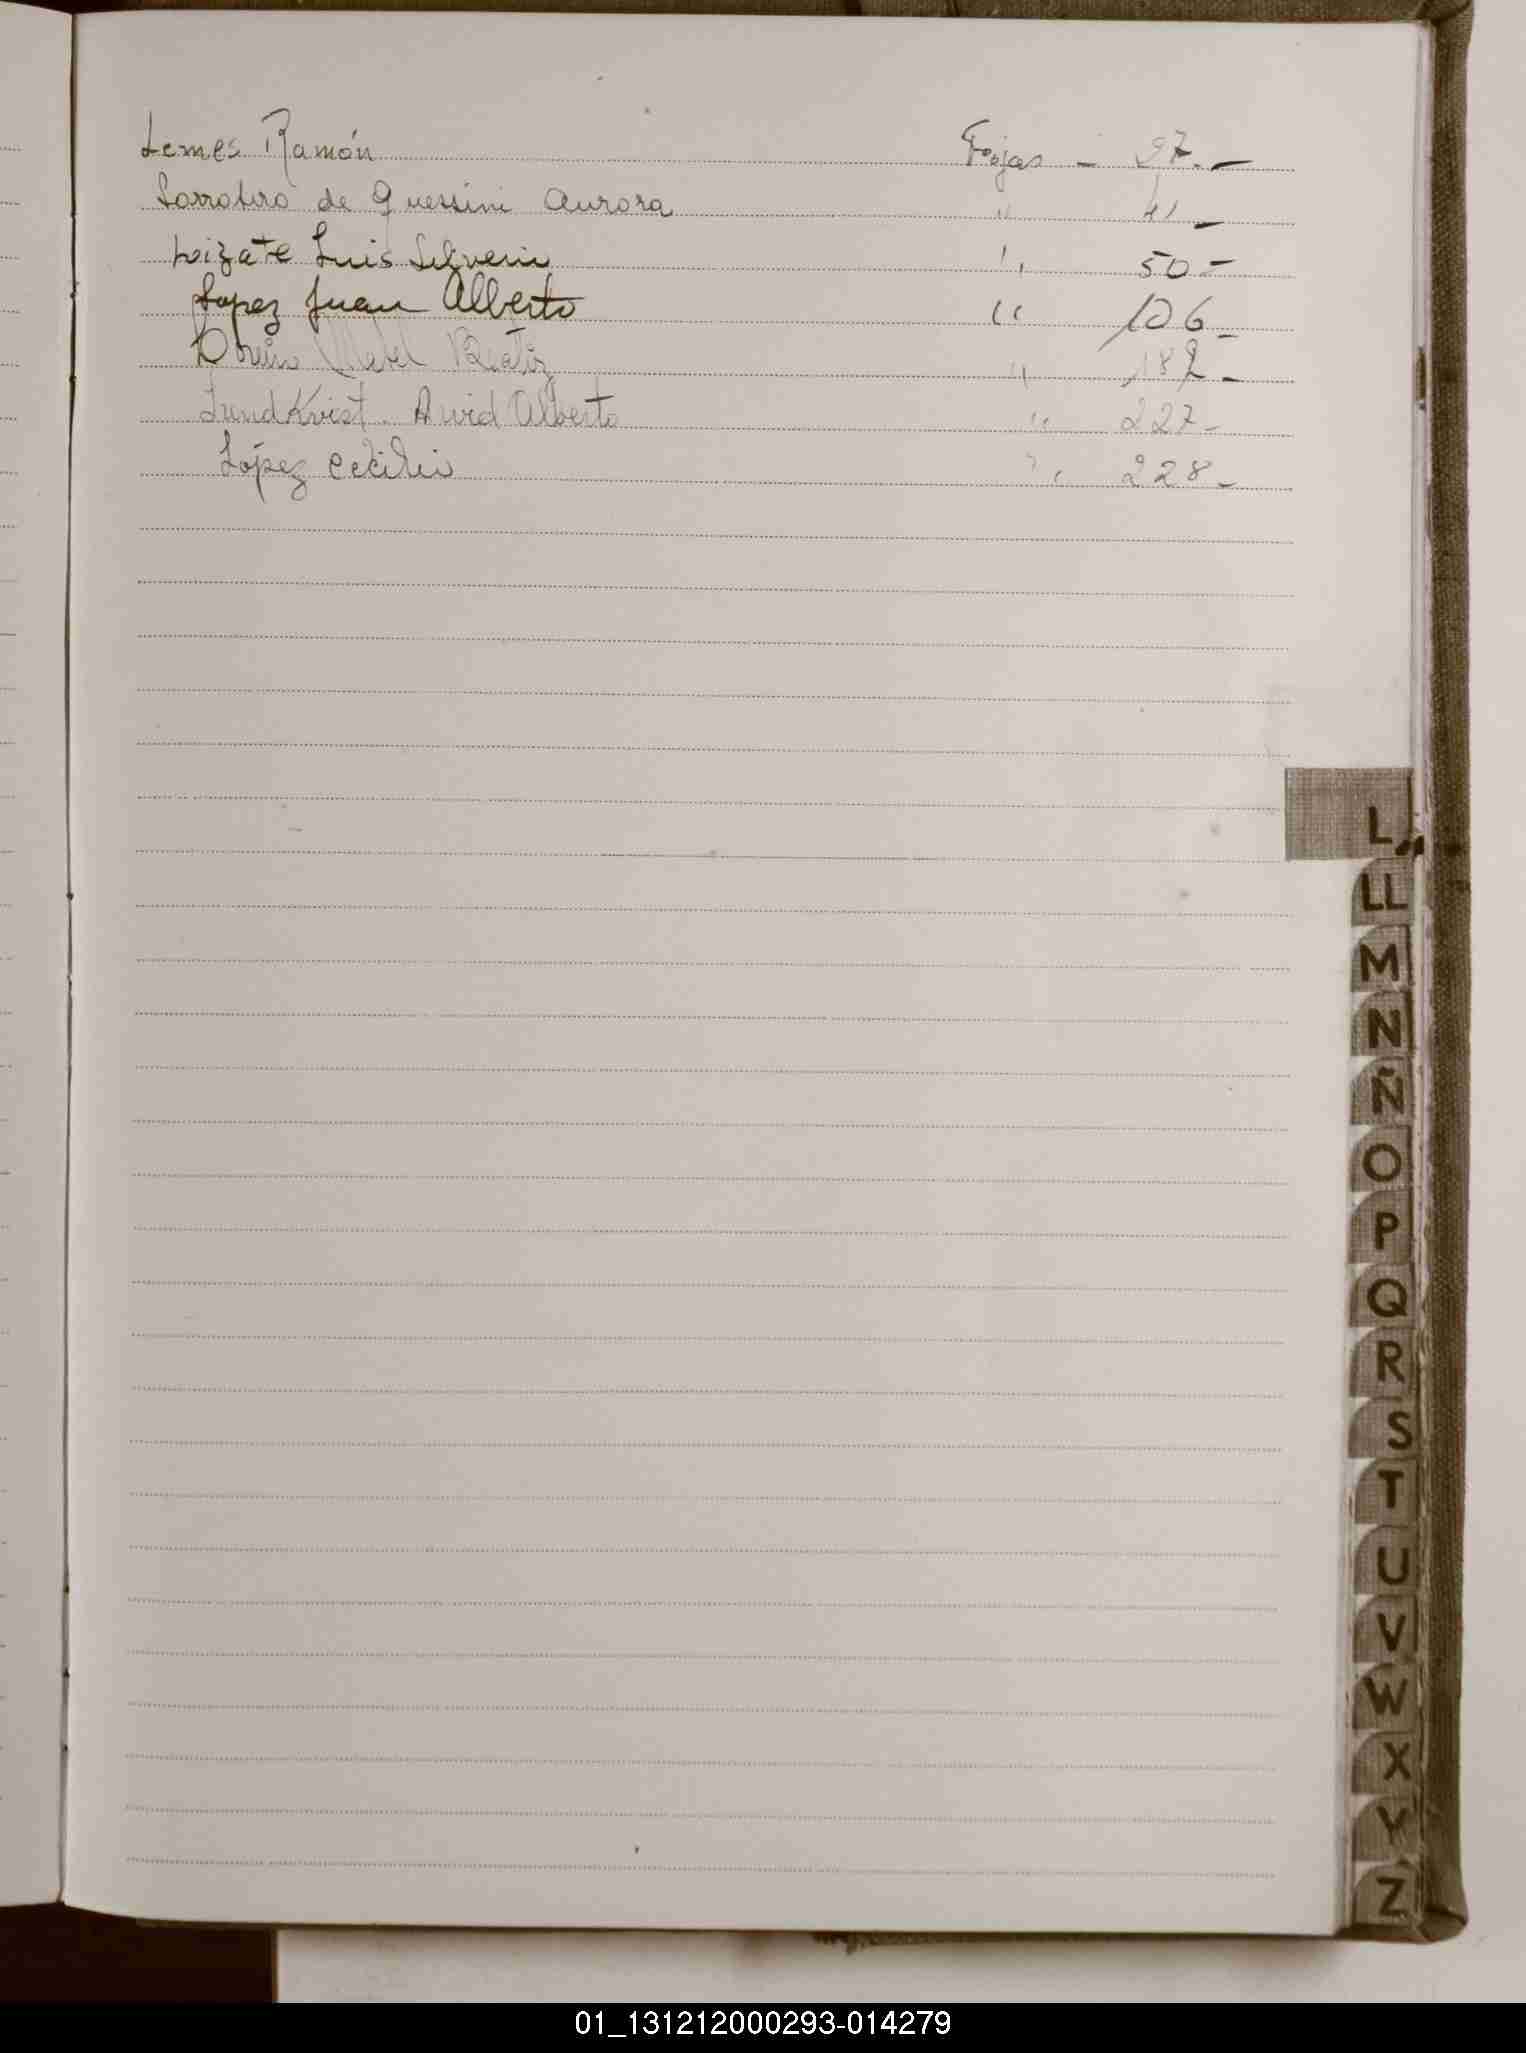 Lemes Ramón Fojas - 97.-
de Guessini Aurora " 41 -
Loizate Luis Silverio " 50 -
Lopez Juan Alberto " 106 -
Mabel Beatriz " 182 -
Lundkvist Arvid Alberto " 227 -
López Cecilia " 228 -
L
LL
M
N
Ñ
O
P
Q
R
S
T
U
V
W
X
Y
Z
01_131212000293-014279